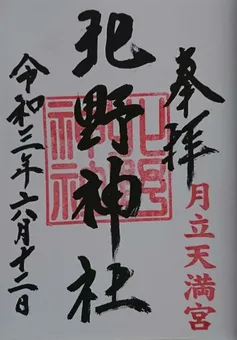 奉拝
月立天満宮
北野神社
北野神社
令和三年六月十二日